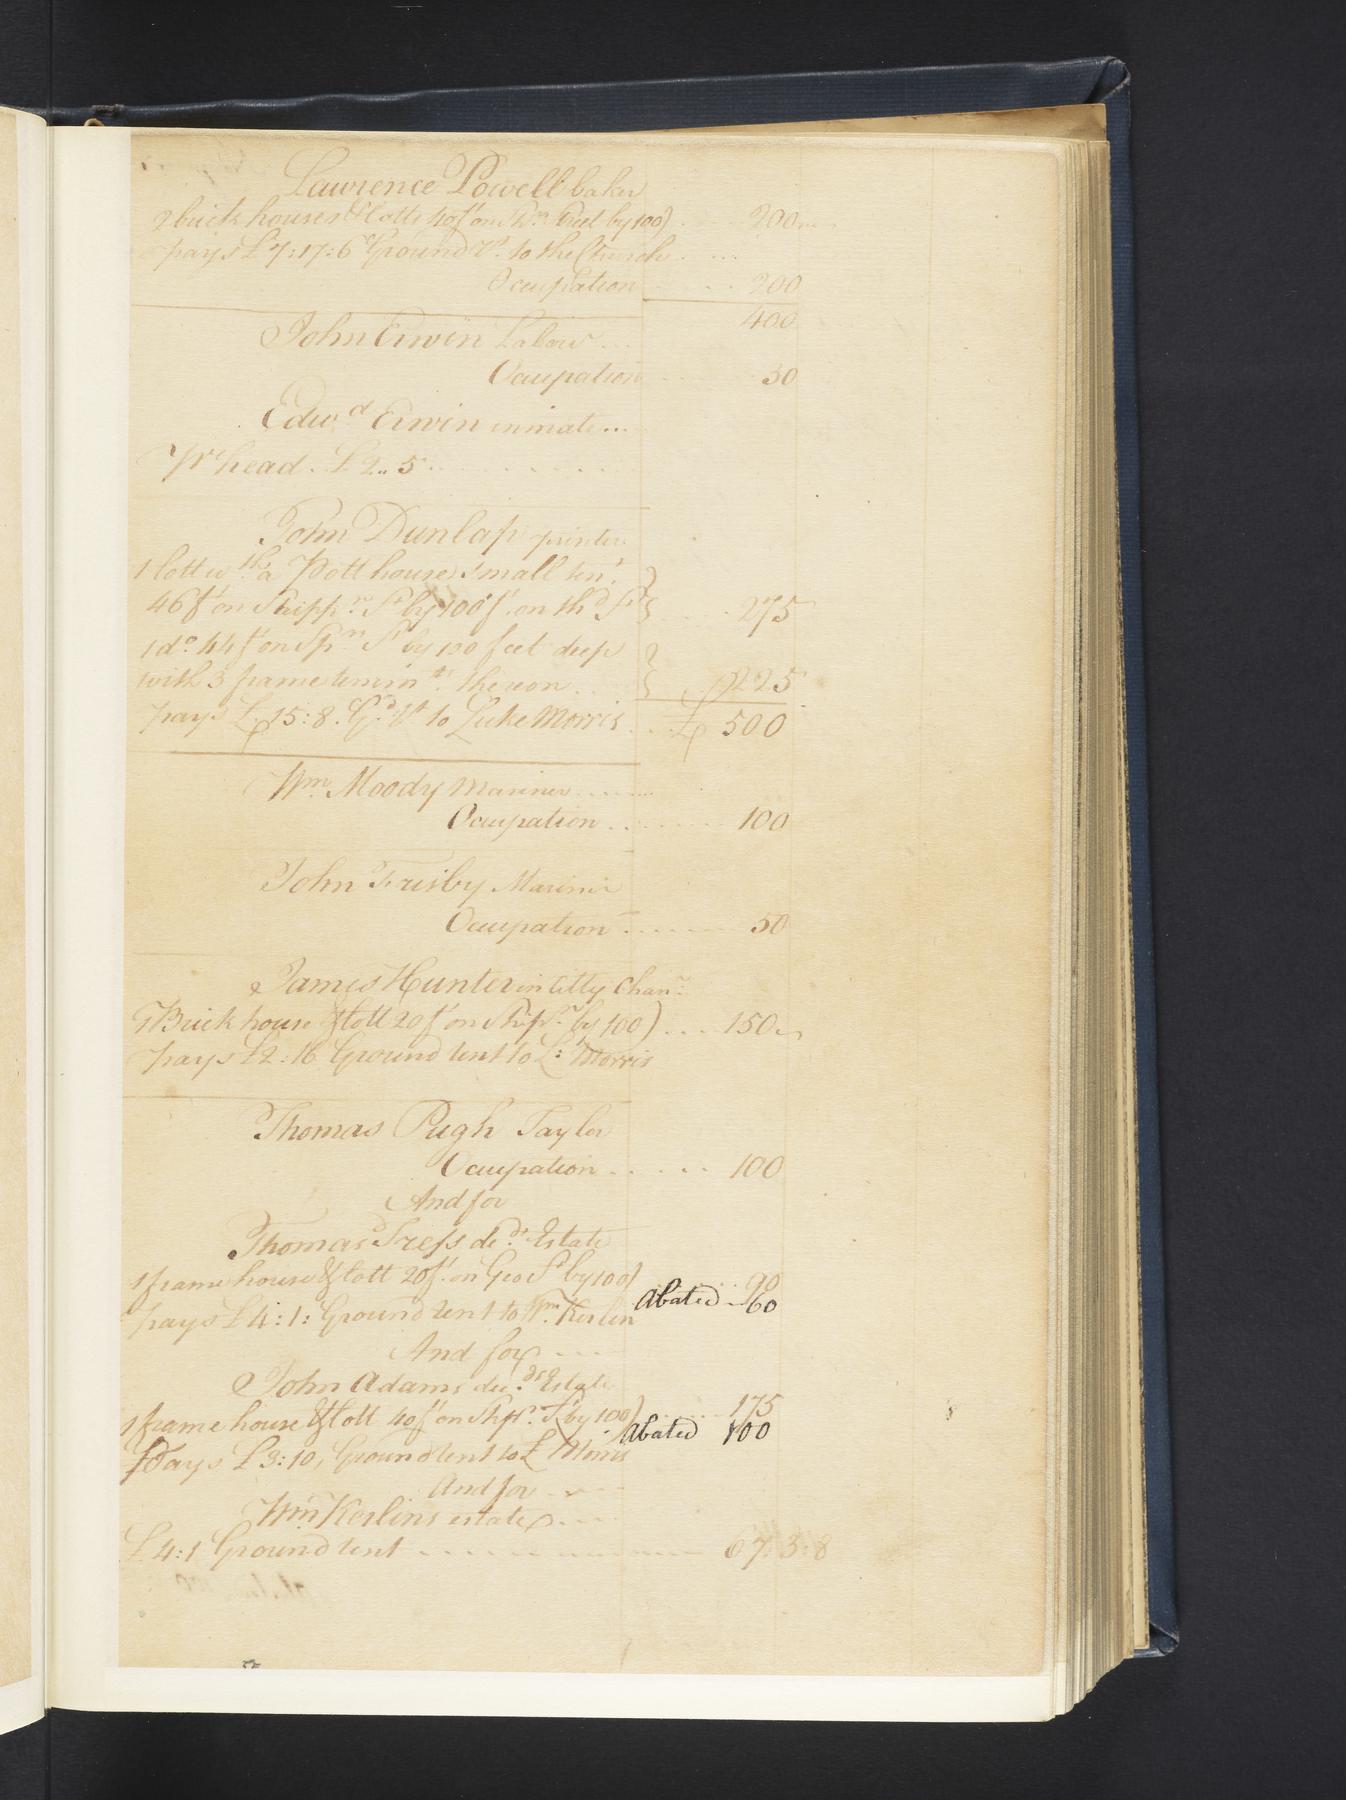 Lawrence Powell baker
2 brick houses & lotts 40 ft on Shn. Street by 100) .... 200
pays £7:17:6 Ground Rt. to the Church ....
Occupation .... 200
400
John Erwin Labour ...
Occupation .... 50
Edwd Erwin inmate ...
Pr head . £ 2 .. 5 ........
John Dunlap printer
1 lott wth a Pott house small tent.
46 ft on Shippn. St by 100 ft. on thd St .... 275
1 do. 44 ft on Spn St by 100 feet deep
with 3 frame tenimts. thereon .. £ 225
pays £15:8. Gd. Rt to Luke Morris ... £ 500
Wm. Moody Mariner ........
Occupation ........ 100
John Frisby Mariner
Occupation ....... 50
James Hunter in Litty Chan
1 Brick house & lott 20 ft on Shipn. by 100) ... 150
pays £2:16 Ground rent to L: Morris
Thomas Pugh Taylor
Occupation ..... 100
And for
Thomas Tress decds. Estate
1 frame house & lott 20 ft. on Geo St by 100) .... 90
Abated .. 60
pays £4:1: Ground rent to Wm. Kerlin
And for ....
John Adams decds Estate
1 frame house & lott 40 ft on Shpn. St by 100) .... 175
Abated 100
Pays £3:10, Ground rent to L Morris
And for ....
Wm Kerlins estate ....
£4:1 Ground rent ........ 67:3:8